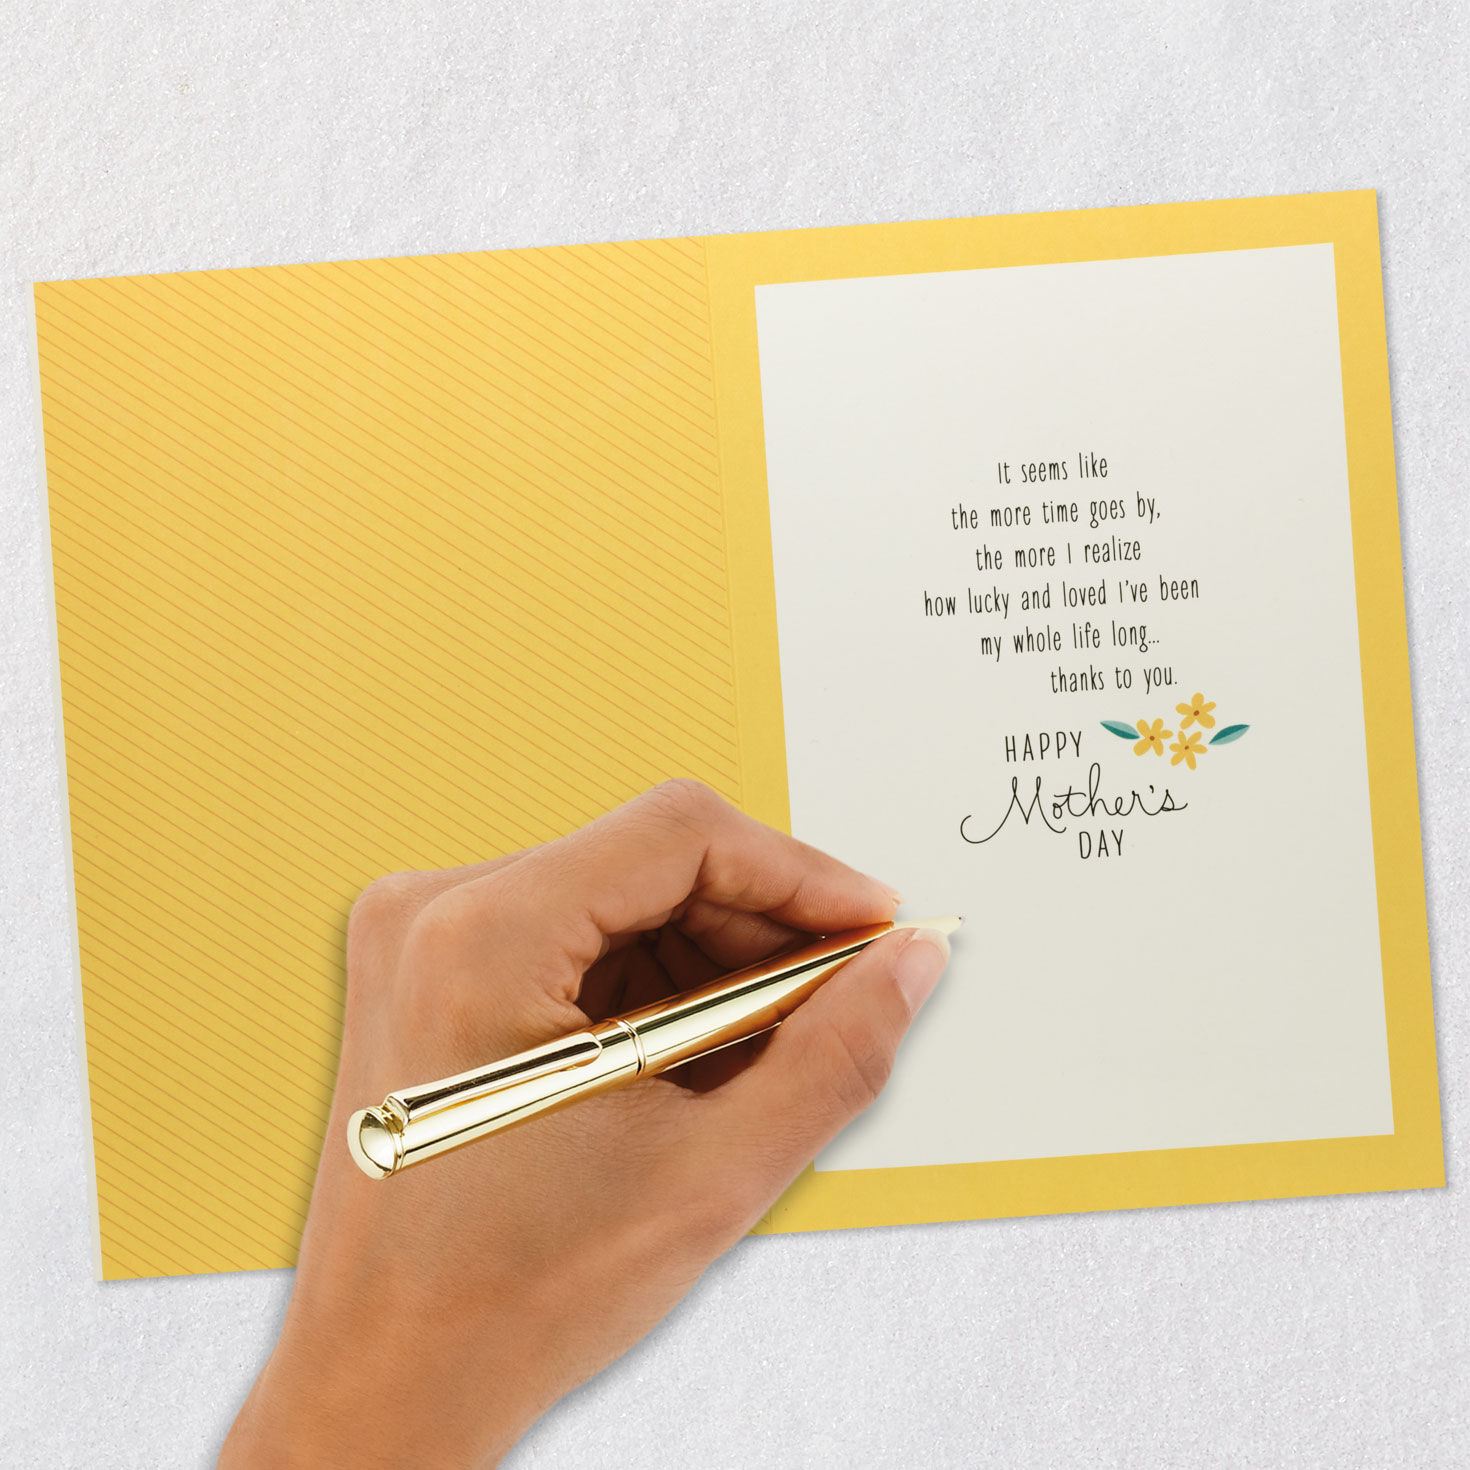 It seems like
the more time goes by,
the more I realize
how lucky and loved I've been
my whole life long...
thanks to you.
HAPPY
Mother's
DAY